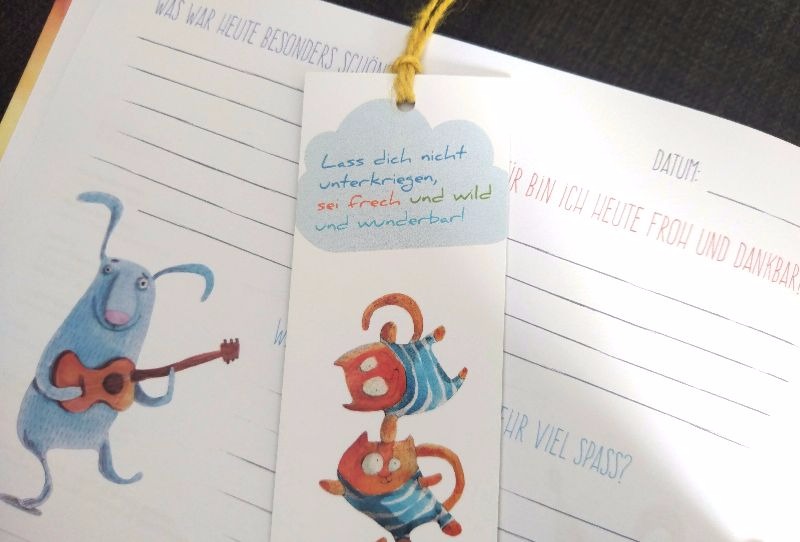 WAS WAR HEUTE BESONDERS SCHÖN
Lass dich nicht
unterkriegen,
sei frech und wild
und wunderbar!
DATUM:
ÜR BIN ICH HEUTE FROH UND DANKBAR?
EHR VIEL SPASS?